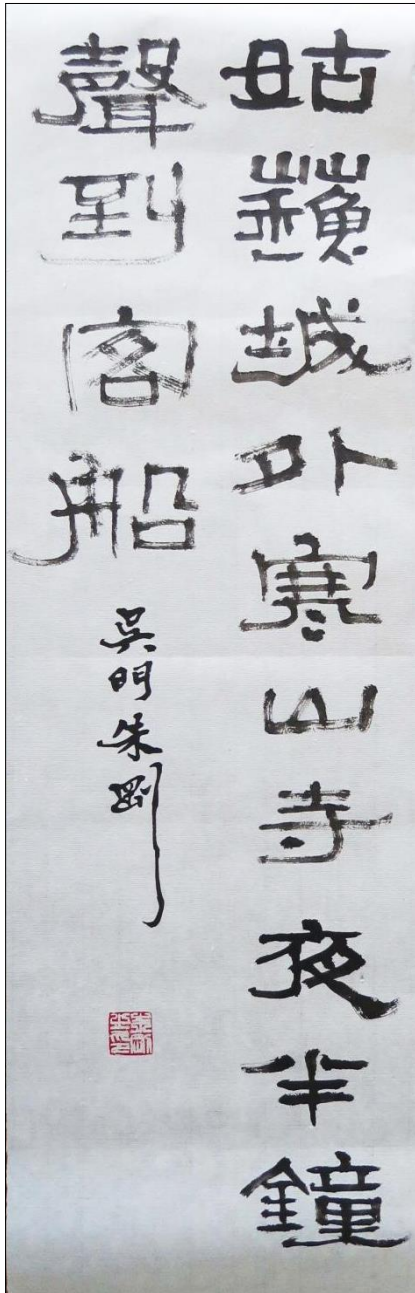 姑蘇城外寒山寺夜半鐘
聲到客船
吳門朱剛